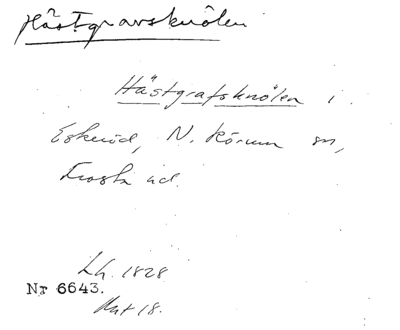 Hästgravsknölen
Hästgrafsknölen i
Eskeröd, N. Rörum sn,
Frosta hd.
Lh. 1828
Nr 6643.
Akt 18.